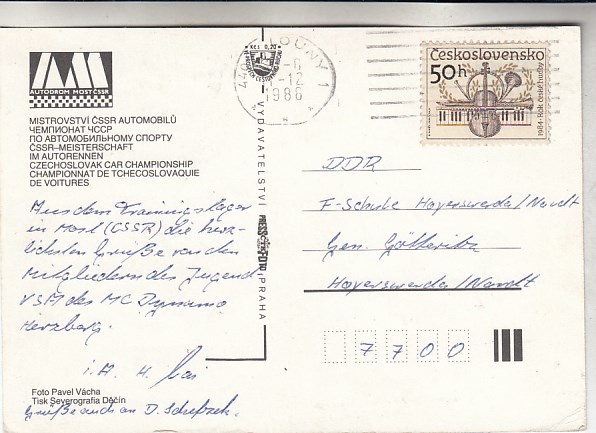 AUTODROM MOST ČSSR
MISTROVSTVÍ ČSSR AUTOMOBILŮ
ЧЕМПИОНАТ ЧССР
ПО АВТОМОБИЛЬНОМУ СПОРТУ
ČSSR–MEISTERSCHAFT
IM AUTORENNEN
CZECHOSLOVAK CAR CHAMPIONSHIP
CHAMPIONNAT DE TCHECOSLOVAQUIE
DE VOITURES
Aus dem Trainingslager
in Most (ČSSR) die herz-
lichsten Grüße von den
Mitgliedern des Jugend
VSM des MC Dynamo
Herzberg.
i.A. H.
Foto Pavel Vácha
Tisk Severografia Děčín
Grüße auch an D.
Kčs 0,20
VYDAVATELSTVÍ PRESSFOTO PRAHA
440 LOUNY 1
-6
-12
1986
Československo
50h
1984-Rok české hudby
DDR
F-Schule Hoyerswerda/Neustadt
Gen. Götteritz
Hoyerswerda/Neustadt
7700